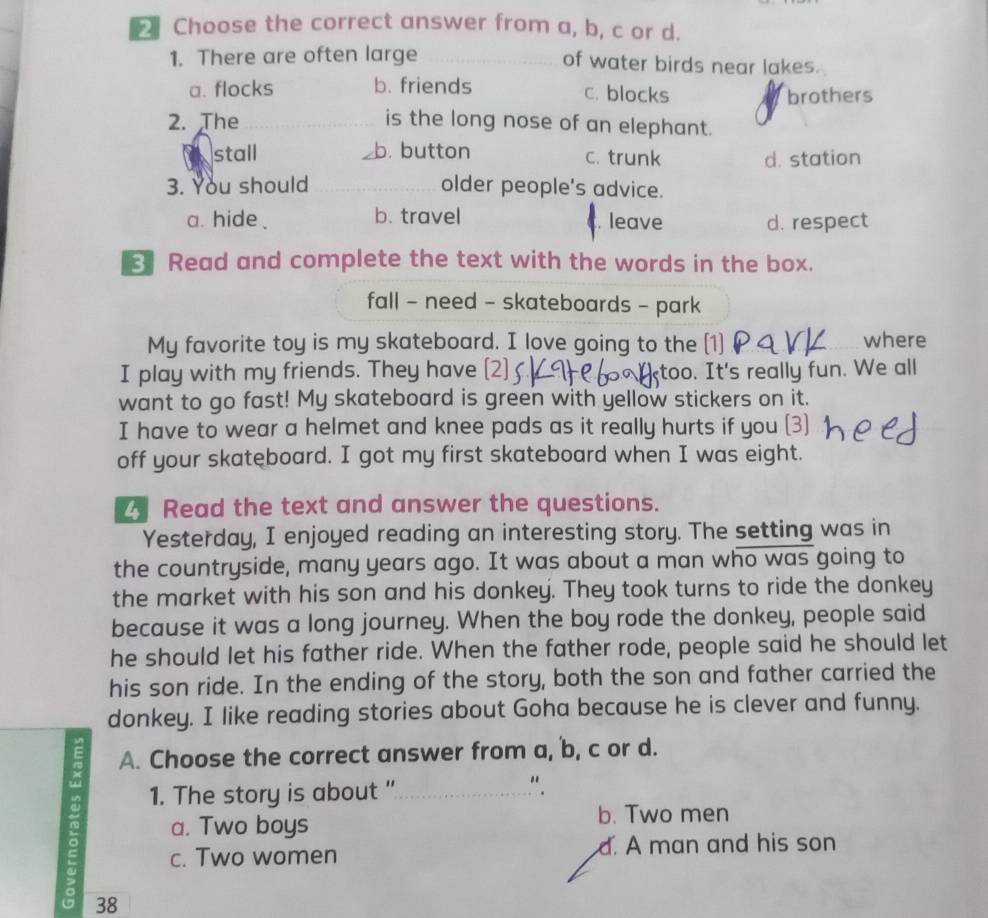 2 Choose the correct answer from a, b, c or d.
1. There are often large .................... of water birds near lakes.
a. flocks b. friends c. blocks brothers
2. The .................... is the long nose of an elephant.
stall b. button c. trunk d. station
3. You should .................... older people's advice.
a. hide b. travel . leave d. respect
3 Read and complete the text with the words in the box.
fall – need – skateboards – park
My favorite toy is my skateboard. I love going to the (1) park where
I play with my friends. They have (2) skateboards too. It's really fun. We all
want to go fast! My skateboard is green with yellow stickers on it.
I have to wear a helmet and knee pads as it really hurts if you (3) need
off your skateboard. I got my first skateboard when I was eight.
4 Read the text and answer the questions.
Yesterday, I enjoyed reading an interesting story. The setting was in
the countryside, many years ago. It was about a man who was going to
the market with his son and his donkey. They took turns to ride the donkey
because it was a long journey. When the boy rode the donkey, people said
he should let his father ride. When the father rode, people said he should let
his son ride. In the ending of the story, both the son and father carried the
donkey. I like reading stories about Goha because he is clever and funny.
A. Choose the correct answer from a, b, c or d.
1. The story is about "....................".
a. Two boys b. Two men
c. Two women d. A man and his son
Governorates Exams
38